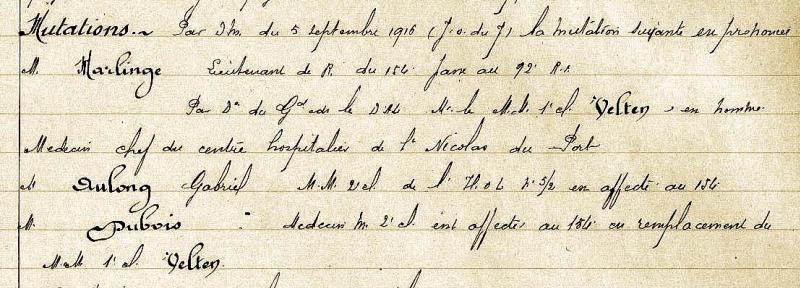 Mutations.~ Par D.M. du 5 septembre 1916 (J.O. du 7) la mutation suivante est prononcée
M. Harlinge Lieutenant de R. du 154 passe au 92 R.I.
Par Don du Gal cdt le D.A.L Mr. le M.M. 1e cl. Velten, est nommé
Medecin chef du centre hospitalier de St Nicolas du Port
M Aulong Gabriel M.M. 2e cl. de l' H.O.E No 5/2 est affecté au 154
M. Dubois " Medecin M. 2e cl. est affecté au 154 en remplacement du
M.M 1e cl. Velten.